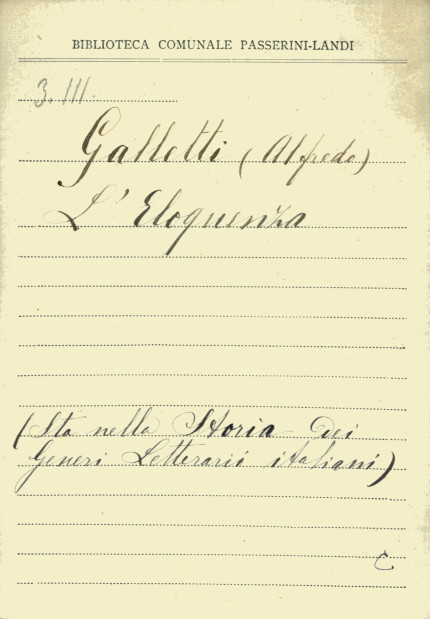 BIBLIOTECA COMUNALE PASSERINI-LANDI
3. III.
Galletti (Alfredo)
L'Eloquenza
(Sta nella Storia dei
Generi Letterarii italiani)
C